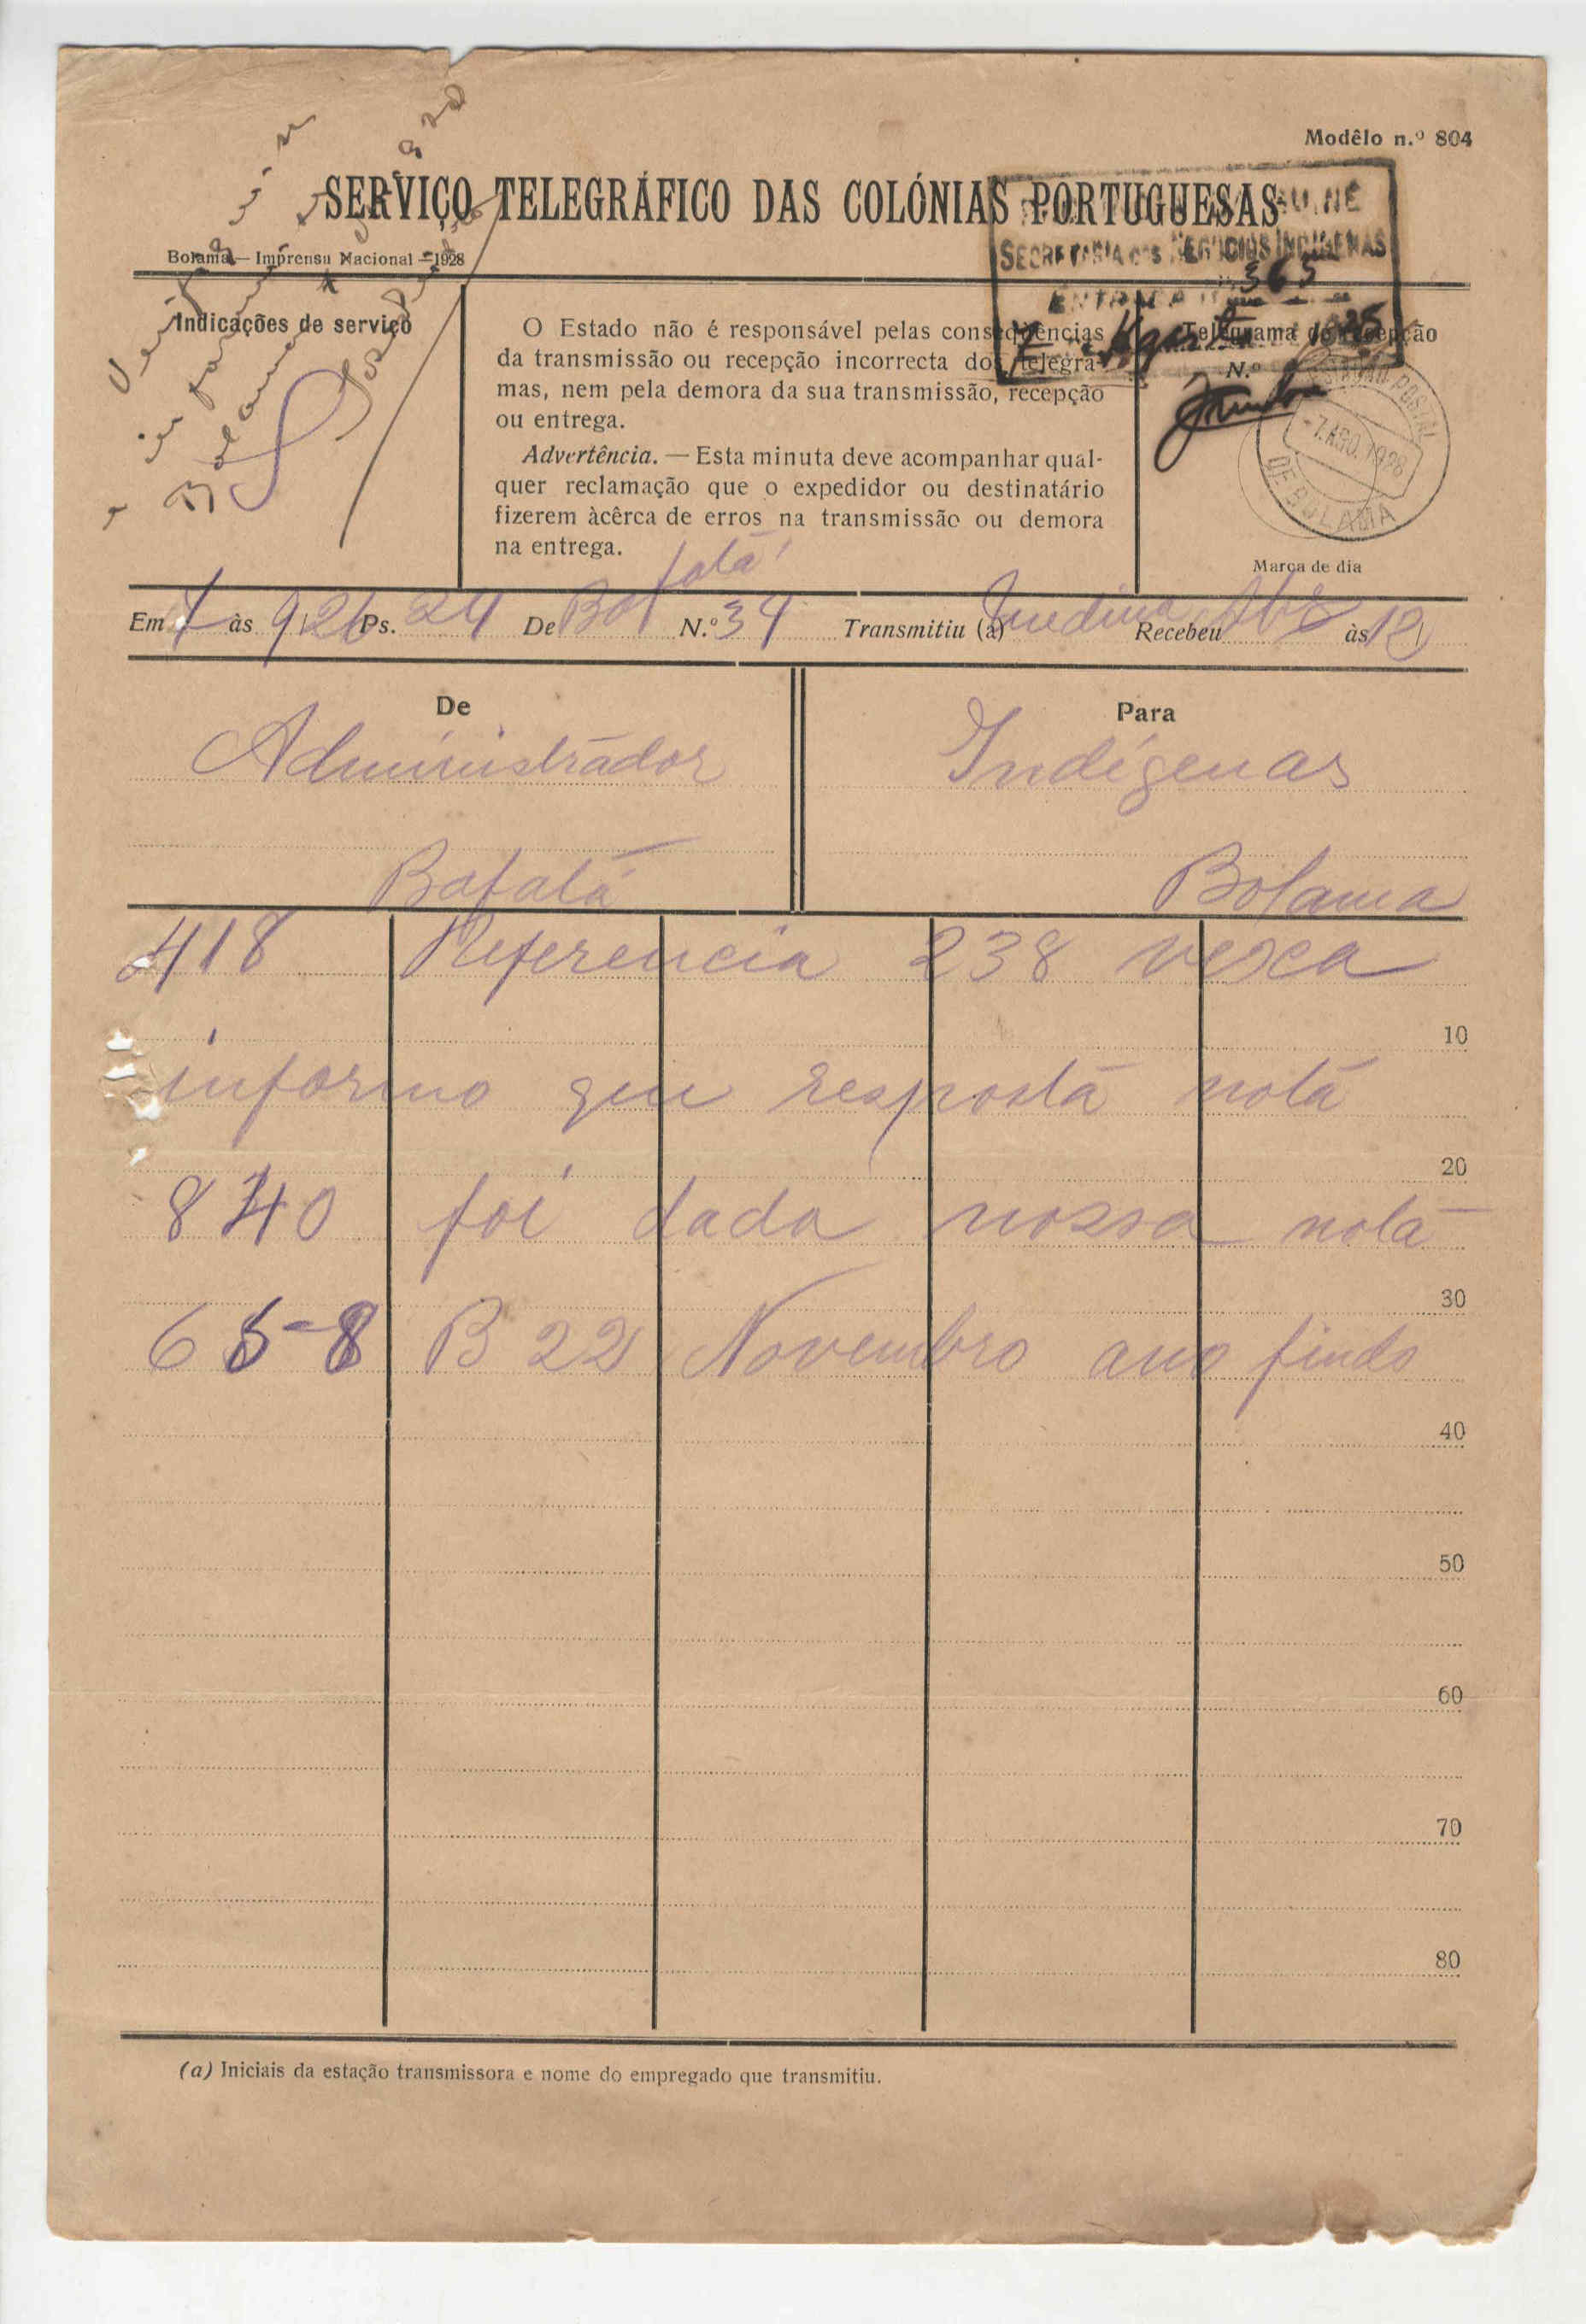 Modêlo n.º 804
SERVIÇO TELEGRÁFICO DAS COLÓNIAS PORTUGUESAS
Bolama — Imprensa Nacional — 1928
SECRETARIA DOS NEGOCIOS INDIGENAS
365
ENTRADA
7
Indicações de serviço
O Estado não é responsável pelas conseqüências
da transmissão ou recepção incorrecta dos telegra-
mas, nem pela demora da sua transmissão, recepção
ou entrega.
Advertência. — Esta minuta deve acompanhar qual-
quer reclamação que o expedidor ou destinatário
fizerem àcêrca de erros na transmissão ou demora
na entrega.
Telegrama de recepção
N.º
POSTAL
-7.AGO.1928
DE BOLAMA
Marca de dia
Em 7 às 9,26 Ps. 24 De Bafatá N.º 34 Transmitiu (a) Recebeu às 12
De
Administrador
Bafatá
Para
Indígenas
Bolama
418 Referencia 238 vexa
10
informo que resposta nota
20
840 foi dada nossa nota
30
65-8 B 22 Novembro ano findo
40
50
60
70
80
(a) Iniciais da estação transmissora e nome do empregado que transmitiu.